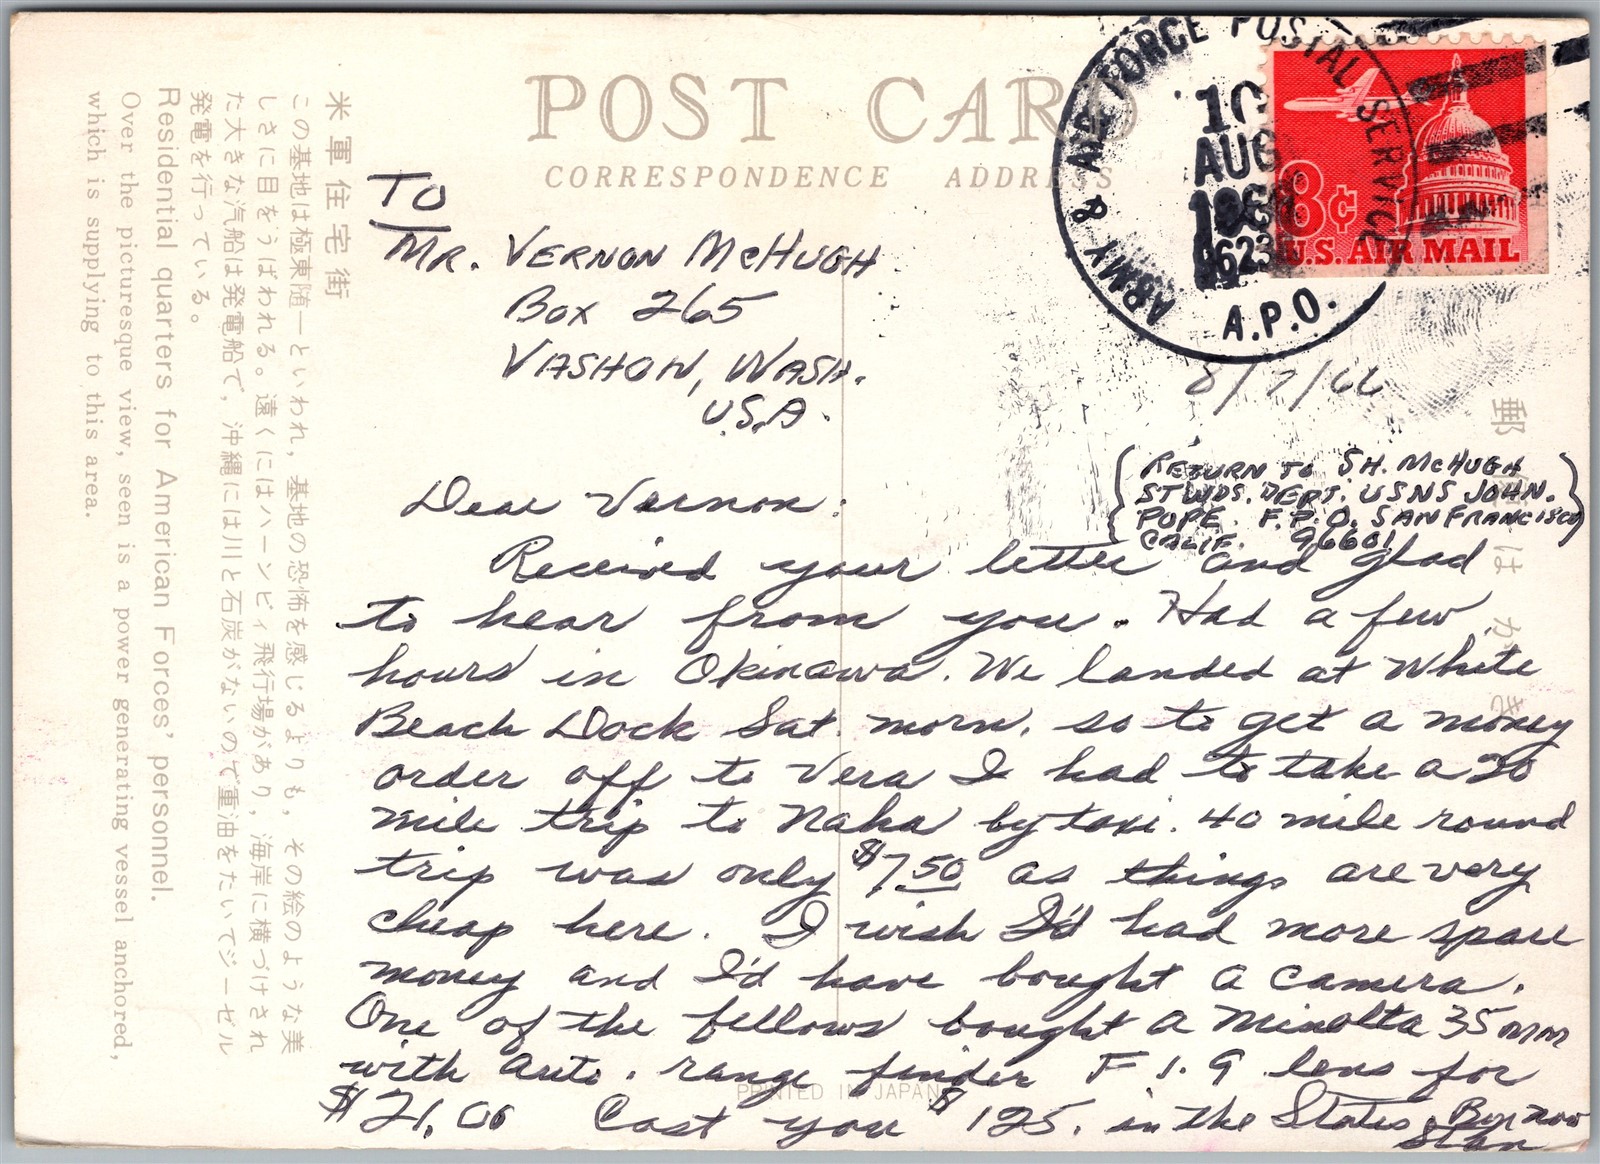 POST CARD
CORRESPONDENCE ADDRESS
ARMY & AIR FORCE POSTAL SERVICE
10
AUG
A.P.O.
8¢
U.S. AIR MAIL
8/7/66
TO
MR. VERNON McHUGH
Box 265
VASHON, WASH.
U.S.A.
RETURN TO S.H. McHUGH
STWDS. DEPT. USNS JOHN.
POPE. F.P.O. SAN FRANCISCO
CALIF. 96601
Dear Vernon:
Received your letter and glad
to hear from you. Had a few
hours in Okinawa. We landed at White
Beach Dock Sat. morn. so to get a money
order off to Vera I had to take a 20
mile trip to Naha by taxi. 40 mile round
trip was only $7.50 as things are very
cheap here. I wish I'd had more spare
money and I'd have bought a camera.
One of the fellows bought a Minolta 35 mm
with auto. range finder F 1.9 lens for
$21.00 Cost you $125. in the States. Bye now
Stan
郵便はがき
PRINTED IN JAPAN
米軍住宅街
この基地は極東随一といわれ，基地の恐怖を感じるよりも，その絵のような美
しさに目をうばわれる。遠くにはハーンビィ飛行場があり，海岸に横づけされ
た大きな汽船は発電船で，沖縄には川と石炭がないので重油をたいてジーゼル
発電を行っている。
Residential quarters for American Forces' personnel.
Over the picturesque view, seen is a power generating vessel anchored,
which is supplying to this area.